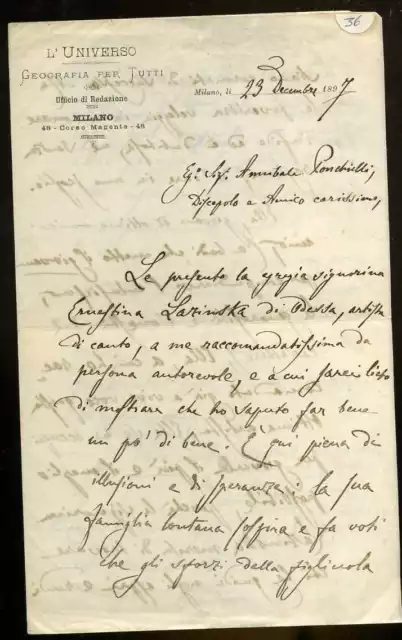 36
L'UNIVERSO
GEOGRAFIA PER TUTTI
Ufficio di Redazione
MILANO
48 - Corso Magenta - 48
Milano, li 23 Decembre 1897
Eg. Sig. Annibale Ponchielli,
Discepolo e Amico carissimo,
Le presento la egregia signorina
Ernestina Lazinska di Odessa, artista
di canto, a me raccomandatissima da
persona autorevole, e a cui sarei lieto
di mostrare che ho saputo far bene
un po' di bene. È qui piena di
illusioni e di speranze; la sua
famiglia lontana soffre e fa voti
che gli sforzi della figliuola